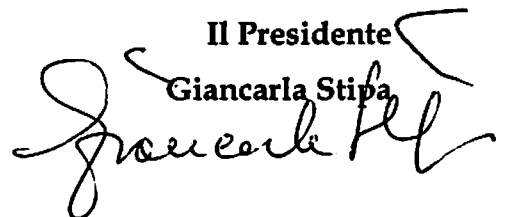 Il Presidente
Giancarla Stipa
Giancarla